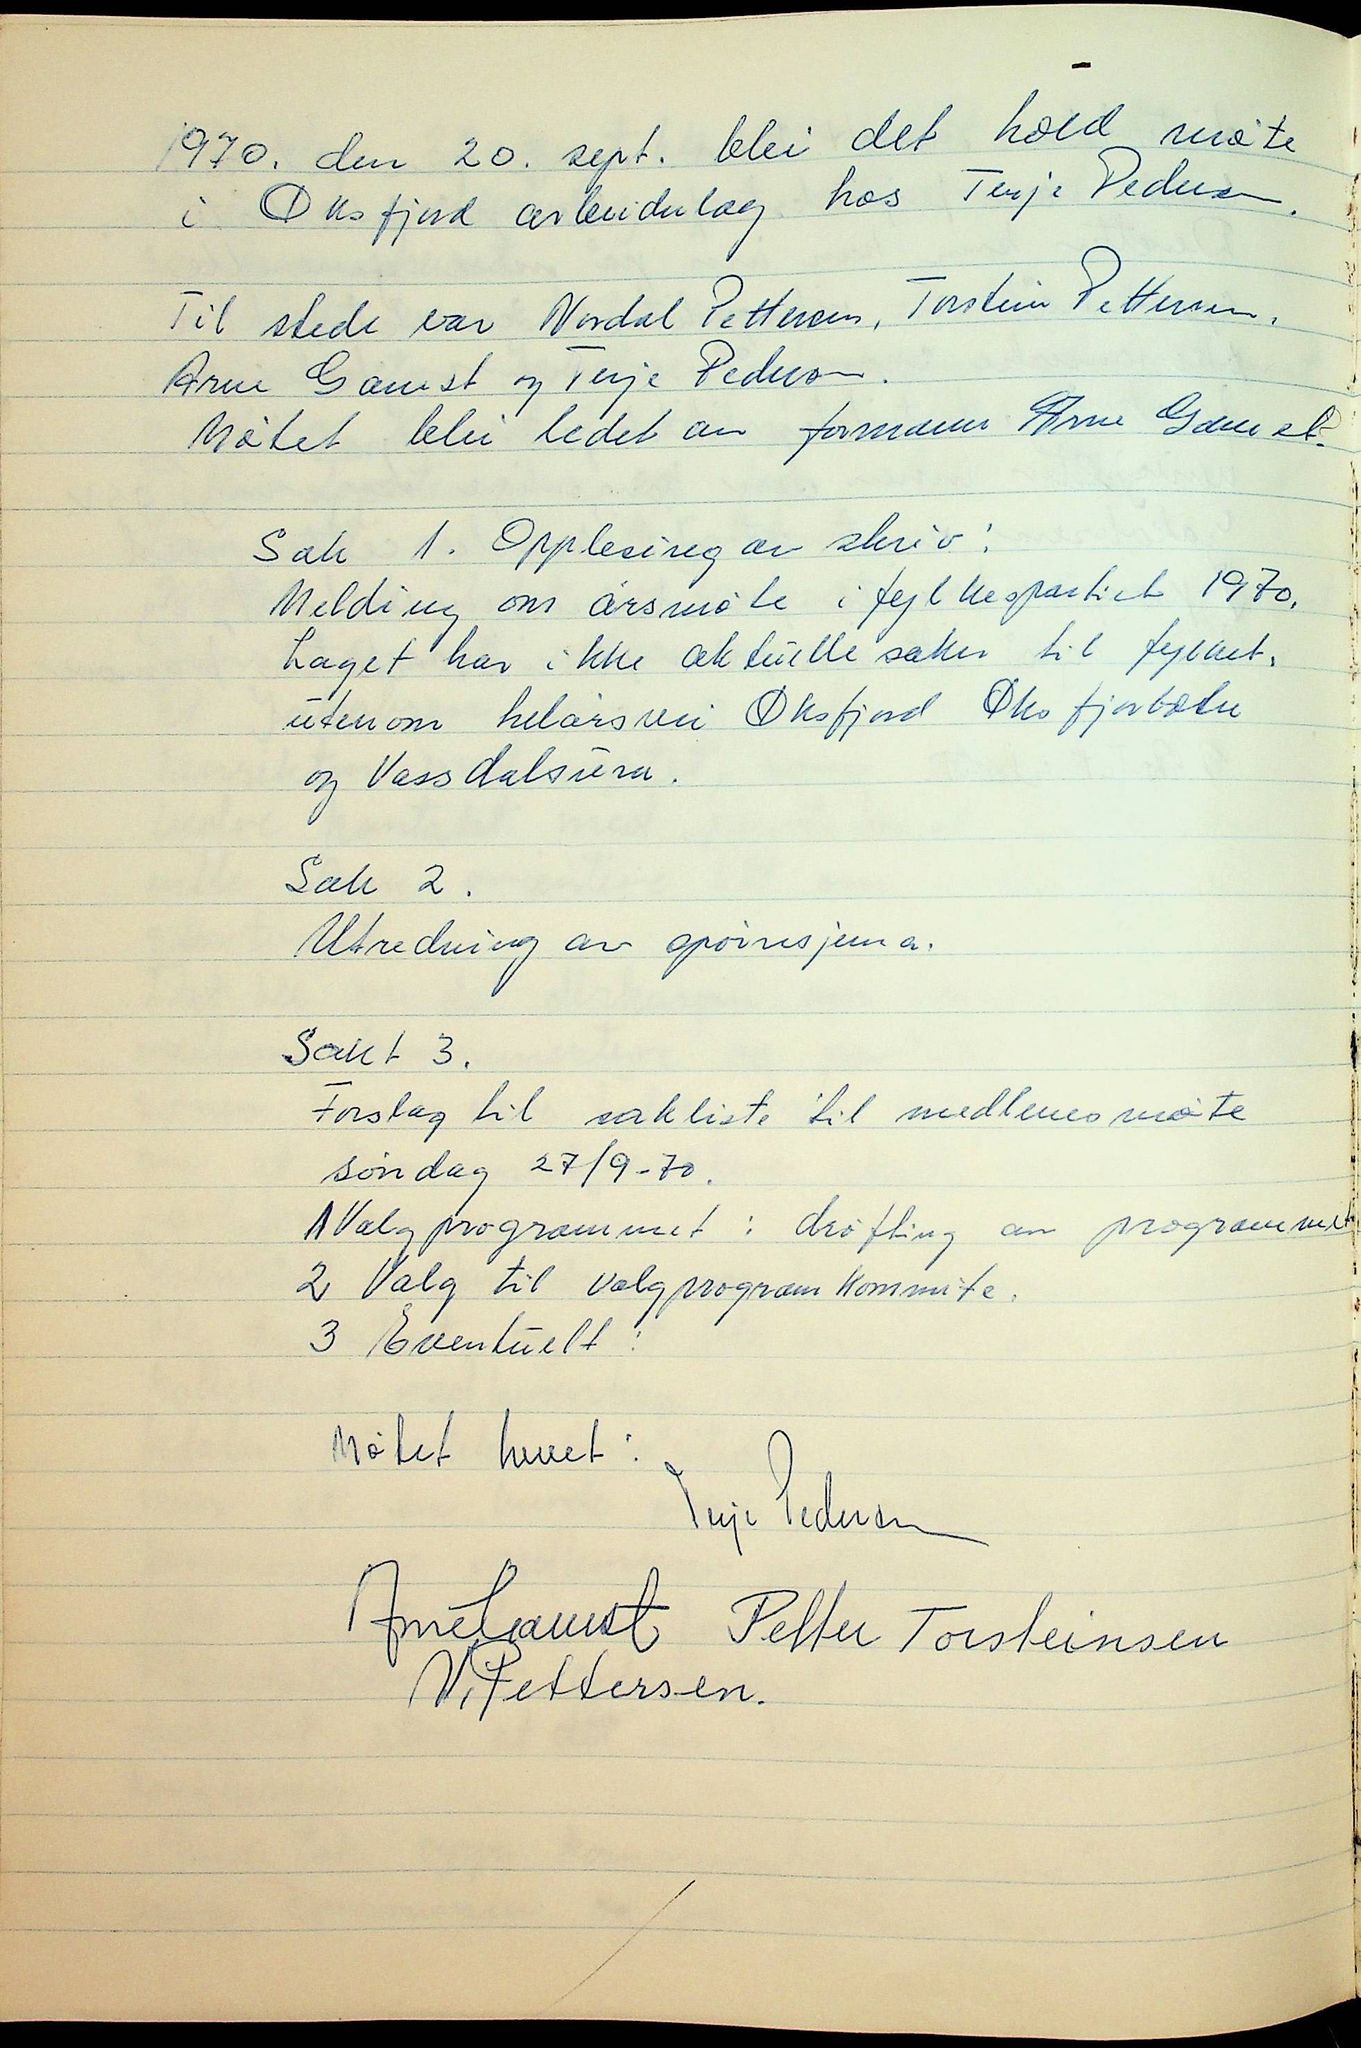 1970. den 20. sept. blei det hold møte
i Øksfjord arbeidulag hos Terje Pedersen.
Til stede var Nordal Pettersen, Torstein Pettersen,
Arne Gamst og Terje Pedersen.
Møtet blei ledet av formann Arne Gamst.
Sak 1. Opplesing av skriv:
Melding om årsmøte i fylkespartiet 1970.
Laget har ikke aktuelle saker til fylket.
utenom helårsvei Øksfjord Øksfjorbotn
og Vassdalsura.
Sak 2.
Utredning av
Sakt 3.
Forslag til sakliste til medlemsmøte
søndag 27/9-70.
1 Valgprogrammet: drøfting av programmet
2 Valg til valgprogram kommite.
3 Eventuelt:
Møtet hevet:
Terje Pedersen
Arne Gamst Petter Torsteinsen
N. Pettersen.